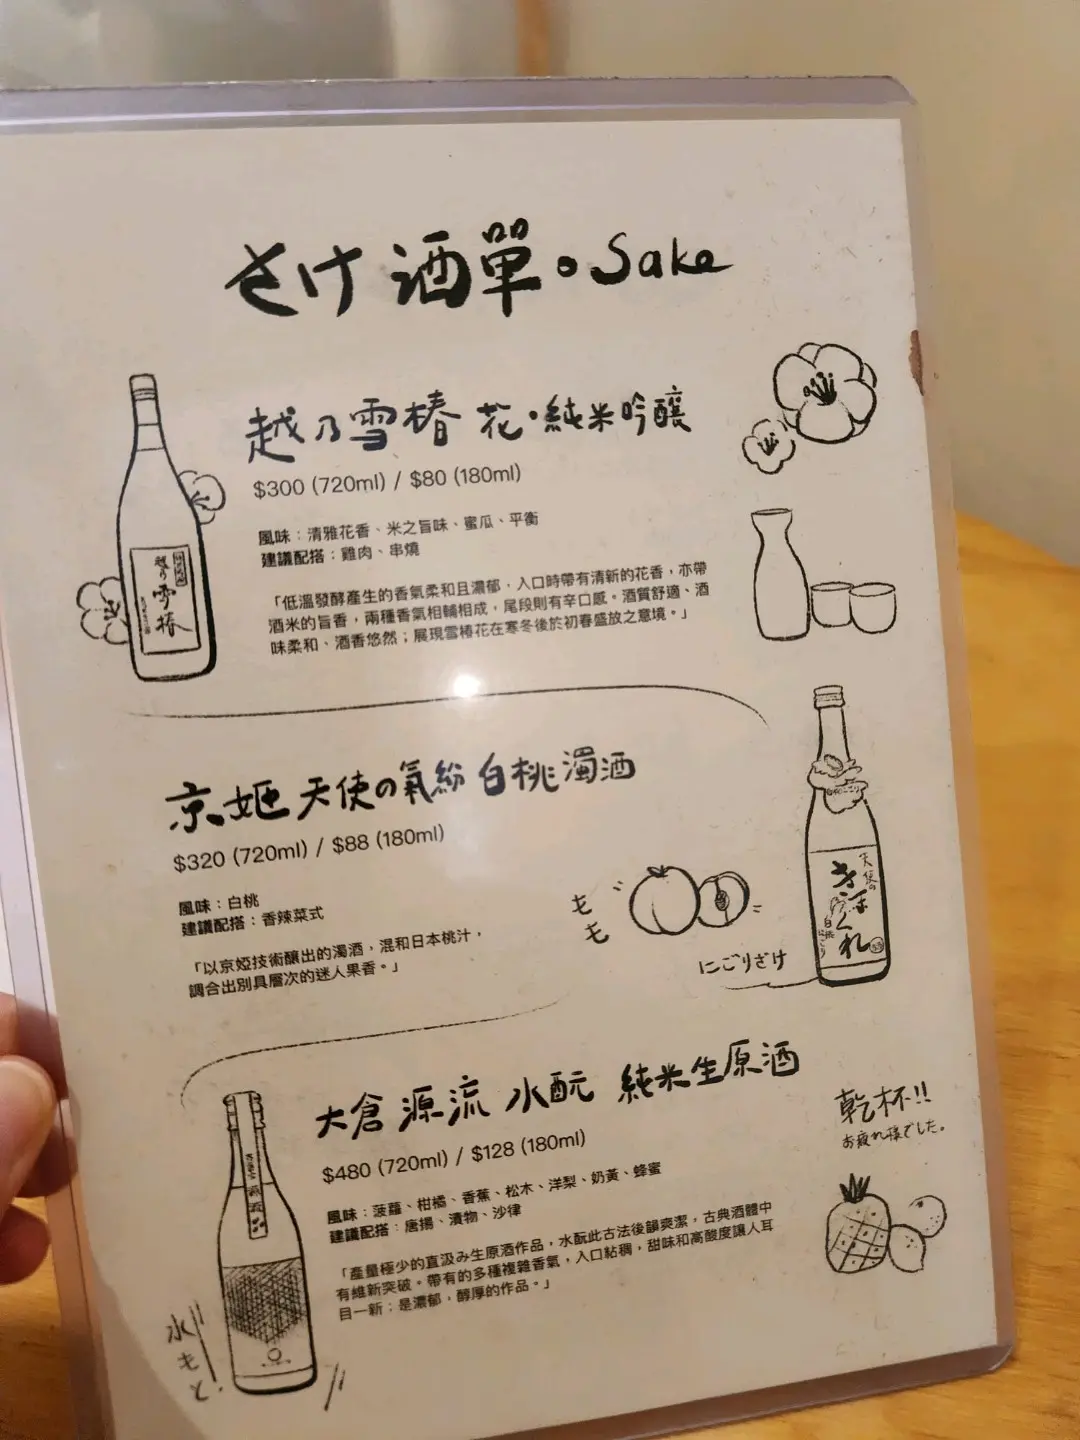 さけ 酒單。Sake
越乃雪椿 花・純米吟釀
$300 (720ml) / $80 (180ml)
風味：清雅花香、米之旨味、蜜瓜、平衡
建議配搭：雞肉、串燒
「低溫發酵產生的香氣柔和且濃郁，入口時帶有清新的花香，亦帶
酒米的旨香，兩種香氣相輔相成，尾段則有辛口感。酒質舒適、酒
味柔和、酒香悠然；展現雪椿花在寒冬後於初春盛放之意境。」
越乃
雪椿
京姬 天使の氣紛 白桃濁酒
$320 (720ml) / $88 (180ml)
風味：白桃
建議配搭：香辣菜式
「以京婭技術釀出的濁酒，混和日本桃汁，
調合出別具層次的迷人果香。」
モモ
にごりざけ
天使の
きまぐれ
白桃
にごり
大倉 源流 水酛 純米生原酒
$480 (720ml) / $128 (180ml)
風味：菠蘿、柑橘、香蕉、松木、洋梨、奶黃、蜂蜜
建議配搭：唐揚、漬物、沙律
「產量極少的直汲み生原酒作品，水酛此古法後韻爽潔，古典酒體中
有維新突破。帶有的多種複雜香氣，入口粘稠，甜味和高酸度讓人耳
目一新；是濃郁，醇厚的作品。」
乾杯!!
お疲れ様でした。
水もと